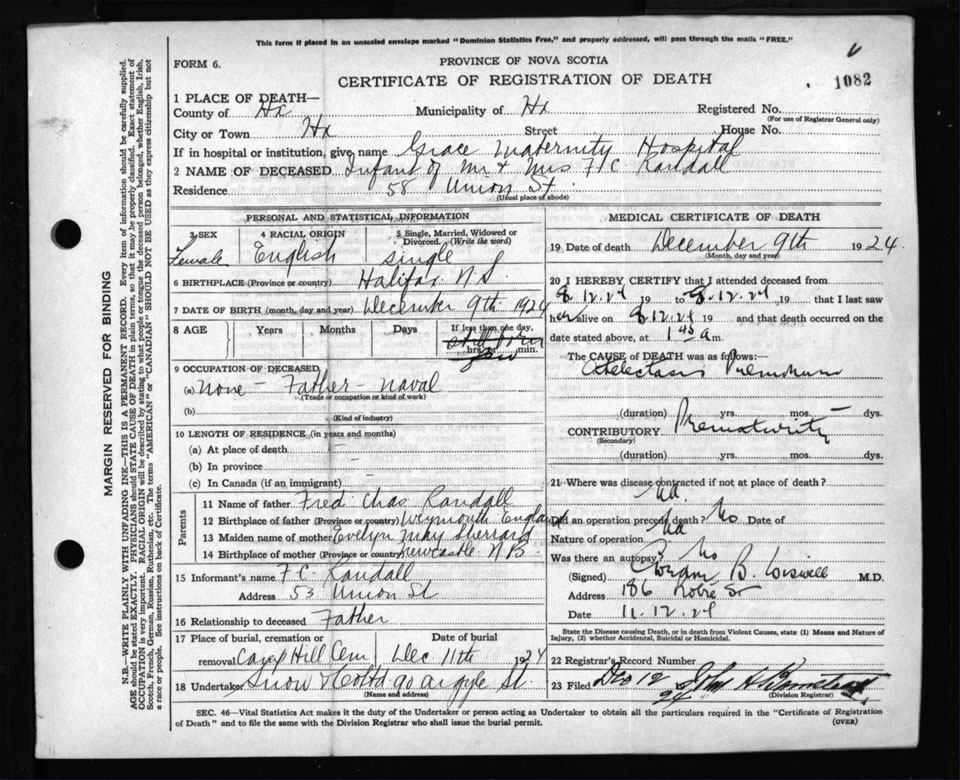 This form if placed in an unsealed envelope marked "Dominion Statistics Free," and properly addressed, will pass through the mails "FREE."
FORM 6.
PROVINCE OF NOVA SCOTIA
CERTIFICATE OF REGISTRATION OF DEATH
1082
1 PLACE OF DEATH—
County of Hx Municipality of Hx Registered No.
(For use of Registrar General only)
City or Town Hx Street House No.
If in hospital or institution, give name Grace Maternity Hospital
2 NAME OF DECEASED Infant of Mr & Mrs F C Randall
Residence 58 Union St.
(Usual place of abode)
PERSONAL AND STATISTICAL INFORMATION
3 SEX 4 RACIAL ORIGIN 5 Single, Married, Widowed or Divorced. (Write the word)
Female English single
6 BIRTHPLACE (Province or country) Halifax N.S.
7 DATE OF BIRTH (month, day and year) December 9th 1924
8 AGE Years Months Days If less than one day,
still born
hrs. min.
9 OCCUPATION OF DECEASED
(a) None - Father - naval
(Trade or occupation or kind of work)
(b)
(Kind of industry)
10 LENGTH OF RESIDENCE (in years and months)
(a) At place of death
(b) In province
(c) In Canada (if an immigrant)
Parents
11 Name of father Fred Chas Randall
12 Birthplace of father (Province or country) Weymouth England
13 Maiden name of mother Evelyn May
14 Birthplace of mother (Province or country) Newcastle N.B.
15 Informant's name F.C. Randall
Address 53 Union St
16 Relationship to deceased Father
17 Place of burial, cremation or removal Camp Hill Cem Date of burial Dec 11th 1924
18 Undertaker Snow & Co Ltd 90 Argyle St.
(Name and address)
MEDICAL CERTIFICATE OF DEATH
19 Date of death December 9th 1924.
(Month, day and year)
20 I HEREBY CERTIFY that I attended deceased from
8.12.24 19 to 8.12.24 19 that I last saw
her alive on 8.12.24 19 and that death occurred on the
date stated above, at 1 45 a m.
The CAUSE of DEATH was as follows:
Atelectasis
(duration) yrs. mos. dys.
CONTRIBUTORY Prematurity
(Secondary)
(duration) yrs. mos. dys.
21 Where was disease contracted if not at place of death?
Did an operation precede death? No Date of
Nature of operation
Was there an autopsy? No
(Signed) B. Wiswell M.D.
Address 186
Date 11.12.24
State the Disease causing Death, or in death from Violent Causes, state (1) Means and Nature of Injury, (2) whether Accidental, Suicidal or Homicidal.
22 Registrar's Record Number
23 Filed Dec 12 24 John A
(Division Registrar)
SEC. 46—Vital Statistics Act makes it the duty of the Undertaker or person acting as Undertaker to obtain all the particulars required in the "Certificate of Registration
of Death" and to file the same with the Division Registrar who shall issue the burial permit. (OVER)
MARGIN RESERVED FOR BINDING
N.B.—WRITE PLAINLY WITH UNFADING INK—THIS IS A PERMANENT RECORD. Every item of information should be carefully supplied.
AGE should be stated EXACTLY. PHYSICIANS should STATE CAUSE OF DEATH in plain terms, so that it may be properly classified. Exact statement of
OCCUPATION is very important. RACIAL ORIGIN will be described by stating to what people or tongue the deceased person belonged, whether English, Irish,
Scotch, French, German, Russian, Ruthenian, etc. The terms "AMERICAN" or "CANADIAN" SHOULD NOT BE USED as they express citizenship but not
a race or people. See instructions on back of Certificate.